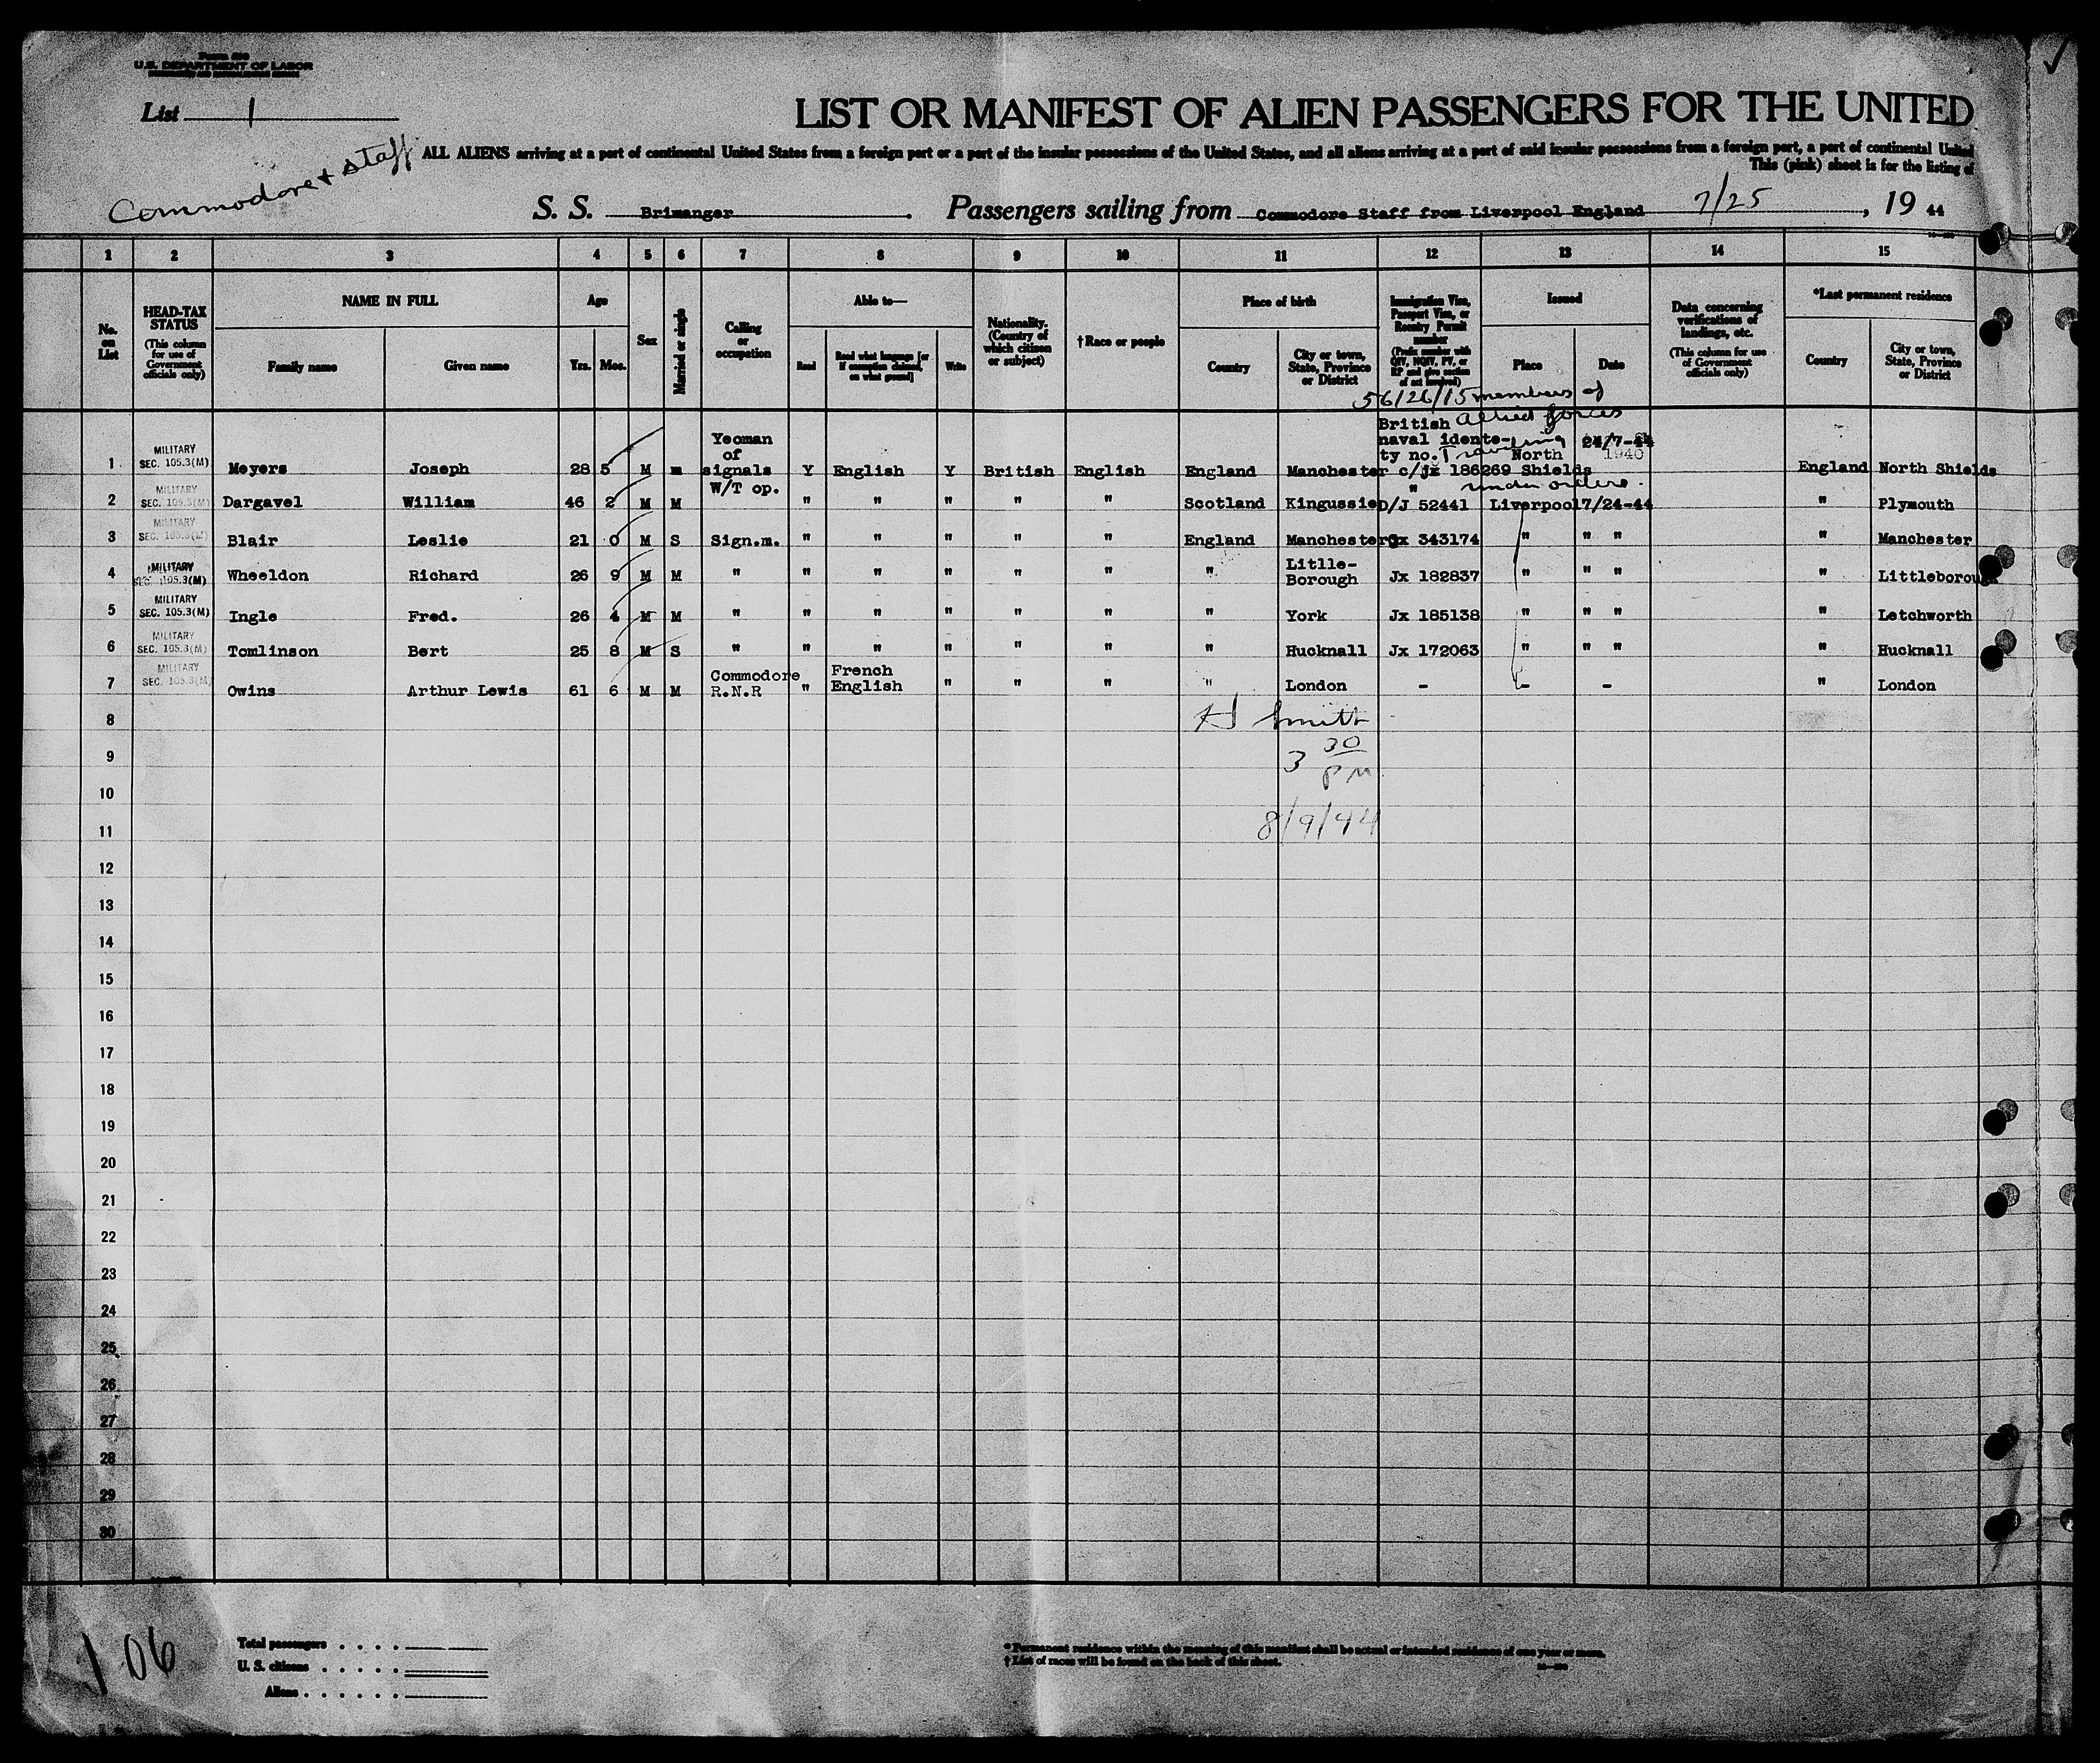 U.S. DEPARTMENT OF LABOR
List 1
LIST OR MANIFEST OF ALIEN PASSENGERS FOR THE UNITED
Commodore + staff
ALL ALIENS arriving at a port of continental United States from a foreign port or a port of the insular possessions of the United States, and all aliens arriving at a port of said insular possessions from a foreign port, a port of continental United
This (pink) sheet is for the listing of
S. S. Brimanger. Passengers sailing from Commodore Staff from Liverpool England 7/25, 19 44
1 2 3 4 5 6 7 8 9 10 11 12 13 14 15
No. on List
HEAD-TAX STATUS (This column for use of Government officials only)
NAME IN FULL
Family name Given name
Age
Yrs. Mos.
Sex
Married or single
Calling or occupation
Able to—
Read Read what language [or if exemption claimed, on what ground] Write
Nationality. (Country of which citizen or subject)
†Race or people
Place of birth
Country City or town, State, Province or District
Immigration Visa, Passport Visa, or Reentry Permit number (Prefix number with QIV, NQIV, PV, or RP and give section of act involved)
Issued
Place Date
Data concerning verifications of landings, etc. (This column for use of Government officials only)
*Last permanent residence
Country City or town, State, Province or District
56/26/15 members of
Allied forces
British naval identity no.
under orders.
1 MILITARY SEC. 105.3(M) Meyers Joseph 28 5 M m Yeoman of signals Y English Y British English England Manchester c/jx 186269 North Shields 24/7-44 1940 England North Shields
2 MILITARY SEC. 105.3(M) Dargavel William 46 2 M M W/T op. " " " " " Scotland Kingussie " D/J 52441 Liverpool 7/24-44 " Plymouth
3 MILITARY SEC. 105.3(M) Blair Leslie 21 0 M S Sign.m. " " " " " England Manchester Jx 343174 " " " " Manchester
4 MILITARY SEC. 105.3(M) Wheeldon Richard 26 9 M M " " " " " " " Litlle-Borough Jx 182837 " " " " Littleborough
5 MILITARY SEC. 105.3(M) Ingle Fred. 26 4 M M " " " " " " " York Jx 185138 " " " " Letchworth
6 MILITARY SEC. 105.3(M) Tomlinson Bert 25 8 M S " " " " " " " Hucknall Jx 172063 " " " " Hucknall
7 MILITARY SEC. 105.3(M) Owins Arthur Lewis 61 6 M M Commodore R.N.R " French English " " " " London - - - " London
8 Smith
9 3 30 PM
10
11 8/9/44
12
13
14
15
16
17
18
19
20
21
22
23
24
25
26
27
28
29
30
106
Total passengers
U. S. citizens
Aliens
*Permanent residence within the meaning of this manifest shall be actual or intended residence of one year or more.
†List of races will be found on the back of this sheet.